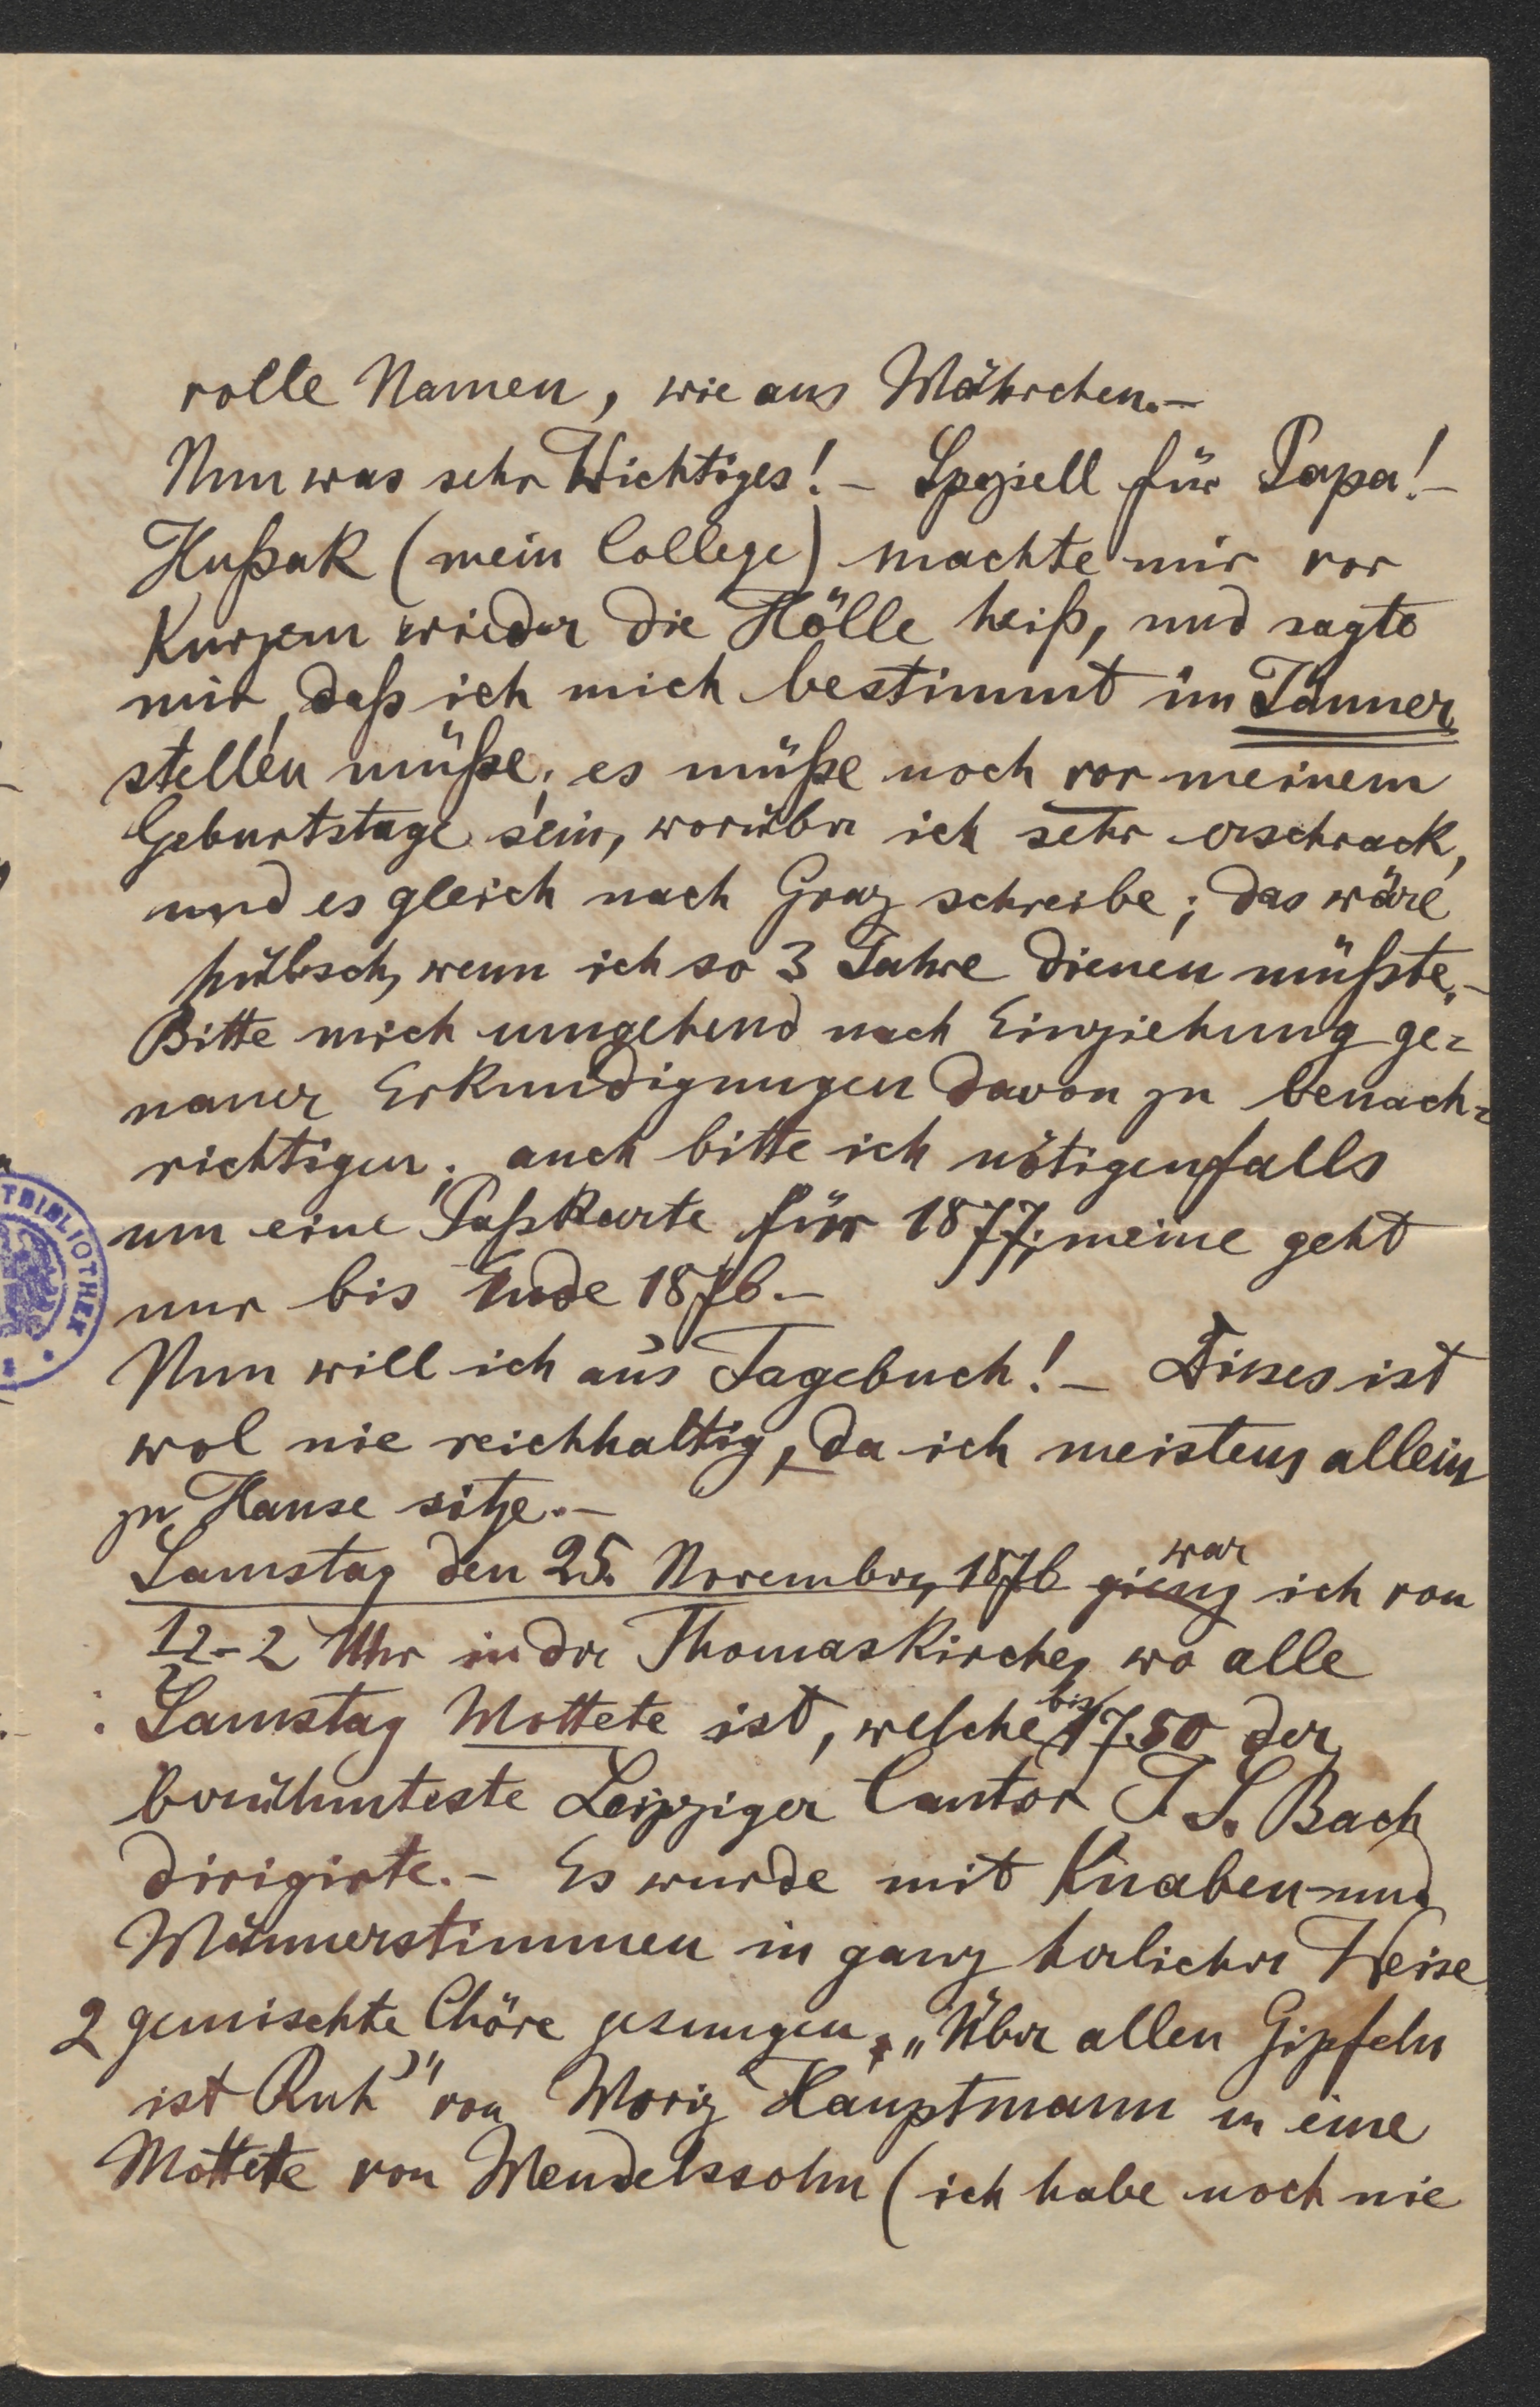 volle Namen, wie aus Mährchen.–
Nun was sehr Wichtiges! – Speziell für Papa! –
Hußak (mein College) machte mir vor
Kurzem wieder die Hölle heiß, und sagte
mir, daß ich mich bestimmt im Jänner
stellen müße; es müße noch vor meinem
Geburtstage sein, worüber ich sehr erschrack,
und es gleich nach Graz schreibe; das wäre
hübsch, wenn ich so 3 Jahre dienen müßte.–
Bitte mich umgehend nach Einziehung ge=
nauer Erkundigungen davon zu benach=
richtigen; auch bitte ich nötigenfalls
um eine Paßkarte für 1877; meine geht
nur bis Ende 1876.–
Nun will ich an's Tagebuch! – Dieses ist
wol nie reichhaltig, da ich meistens allein
zu Hause sitze.–
Samstag den 25. November 1876 gieng war ich von
½2–2 Uhr in der Thomaskirche, wo alle
Samstag Mottete ist, welche bis 1750 der
berühmteste Leipziger Cantor J. S. Bach
dirigirte.– Es wurde mit Knaben- und
Männerstimmen in ganz herlicher Weise
2 gemischte Chöre gesungen, „Über allen Gipfeln
ist Ruh'" von Moriz Hauptmann u eine
Mottete von Mendelssohn (ich habe noch nie
TBIBLIOTHEK